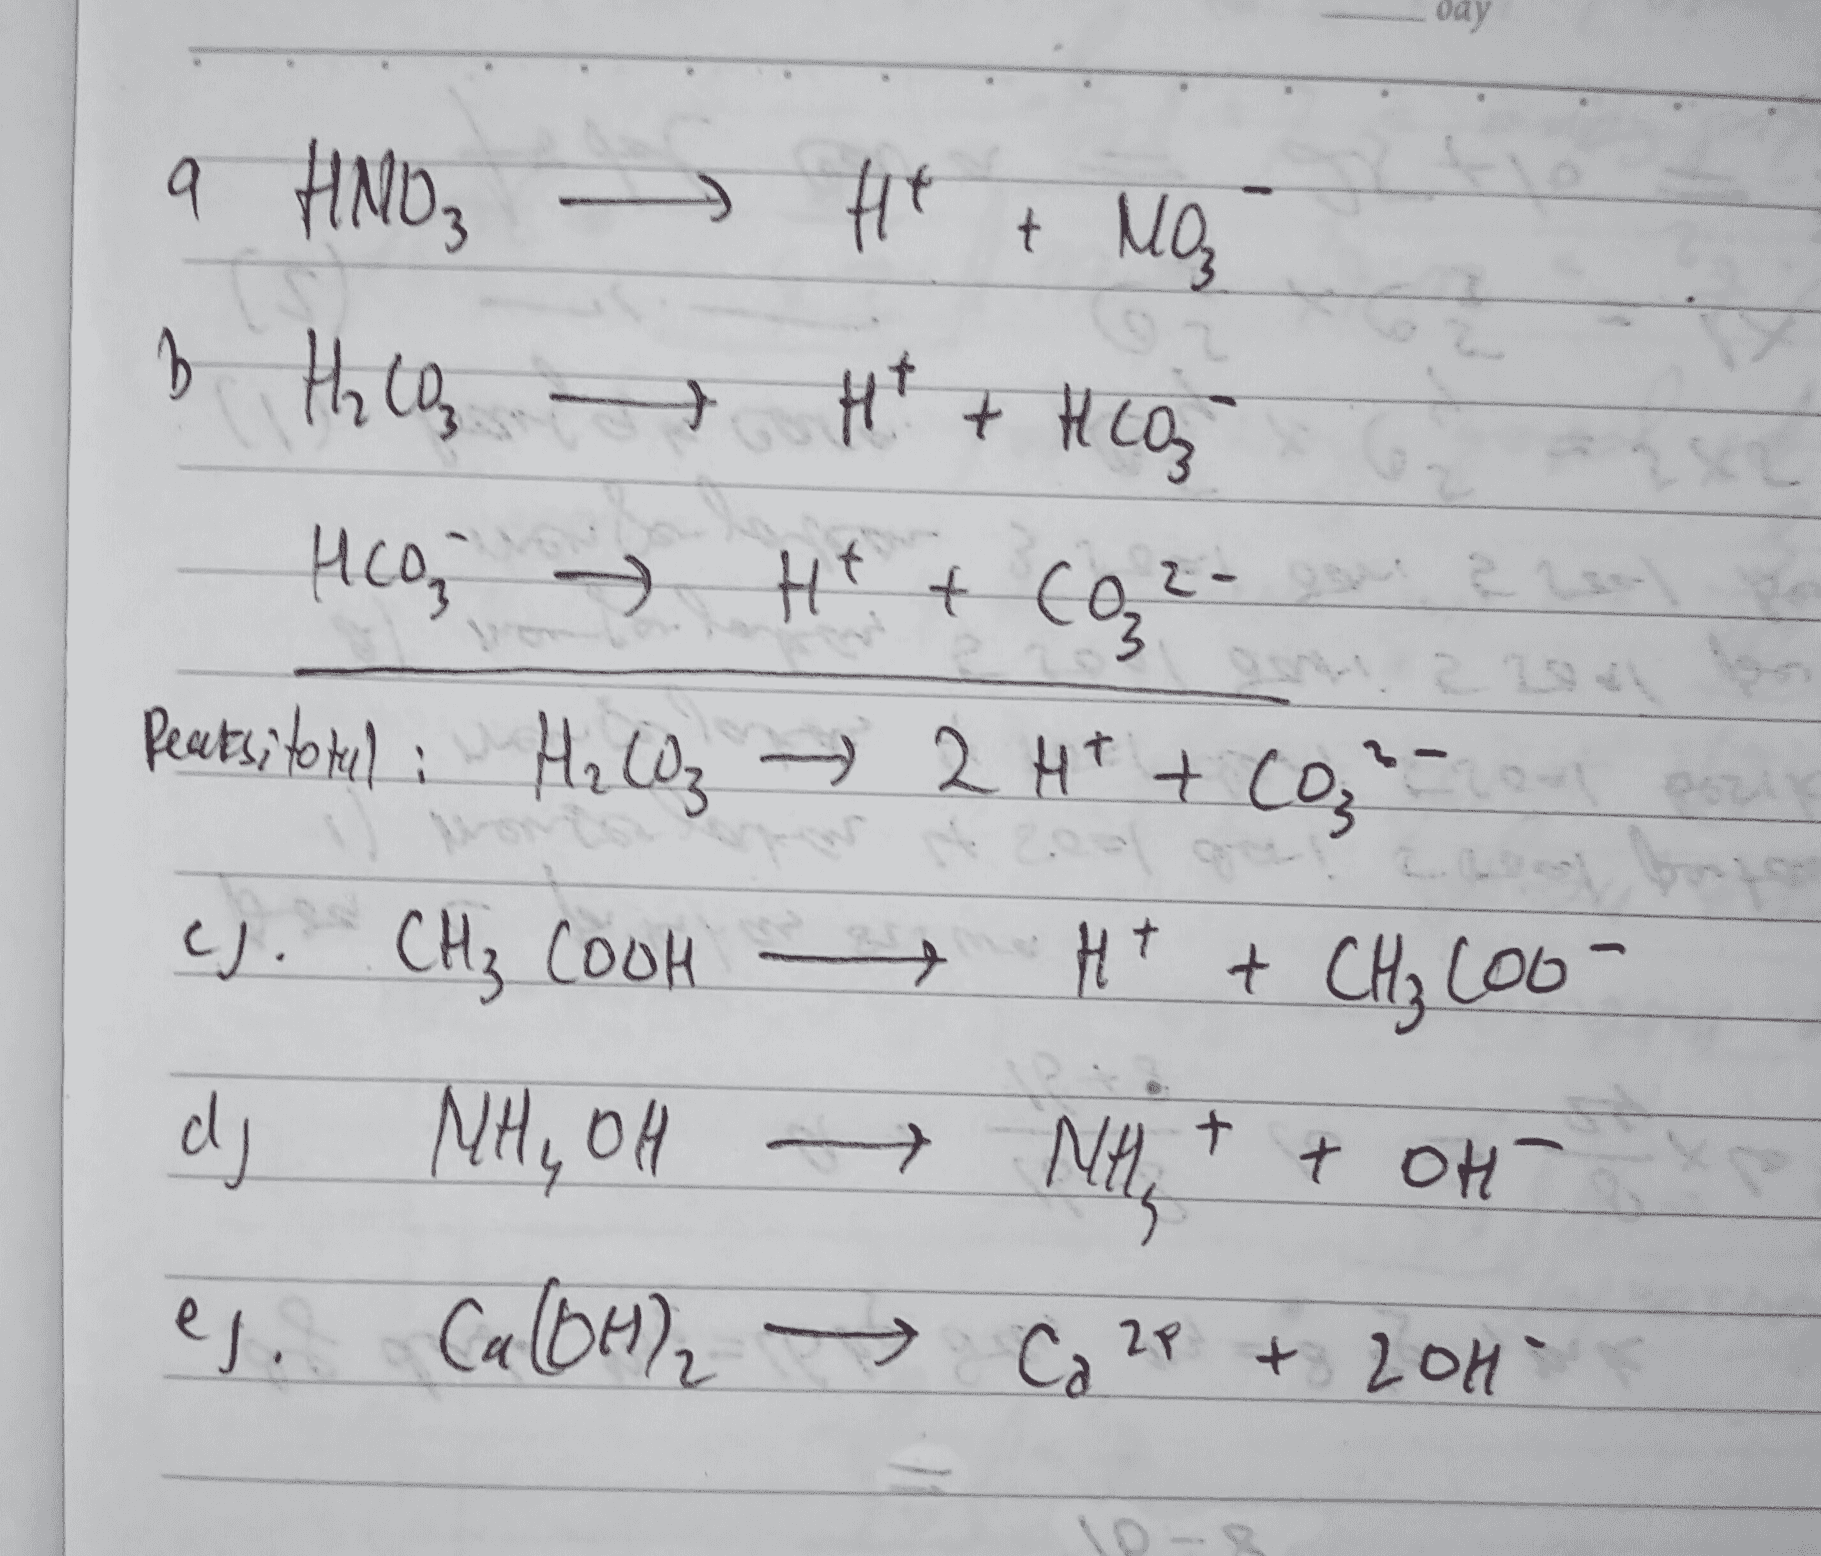 Day
a HNO₃ → H⁺ + NO₃⁻
b H₂CO₃ → H⁺ + HCO₃⁻
HCO₃⁻ → H⁺ + CO₃²⁻
Reaksi total : H₂CO₃ → 2 H⁺ + CO₃²⁻
c). CH₃COOH → H⁺ + CH₃COO⁻
d) NH₄OH → NH₄⁺ + OH⁻
e). Ca(OH)₂ → Ca²⁺ + 2OH⁻